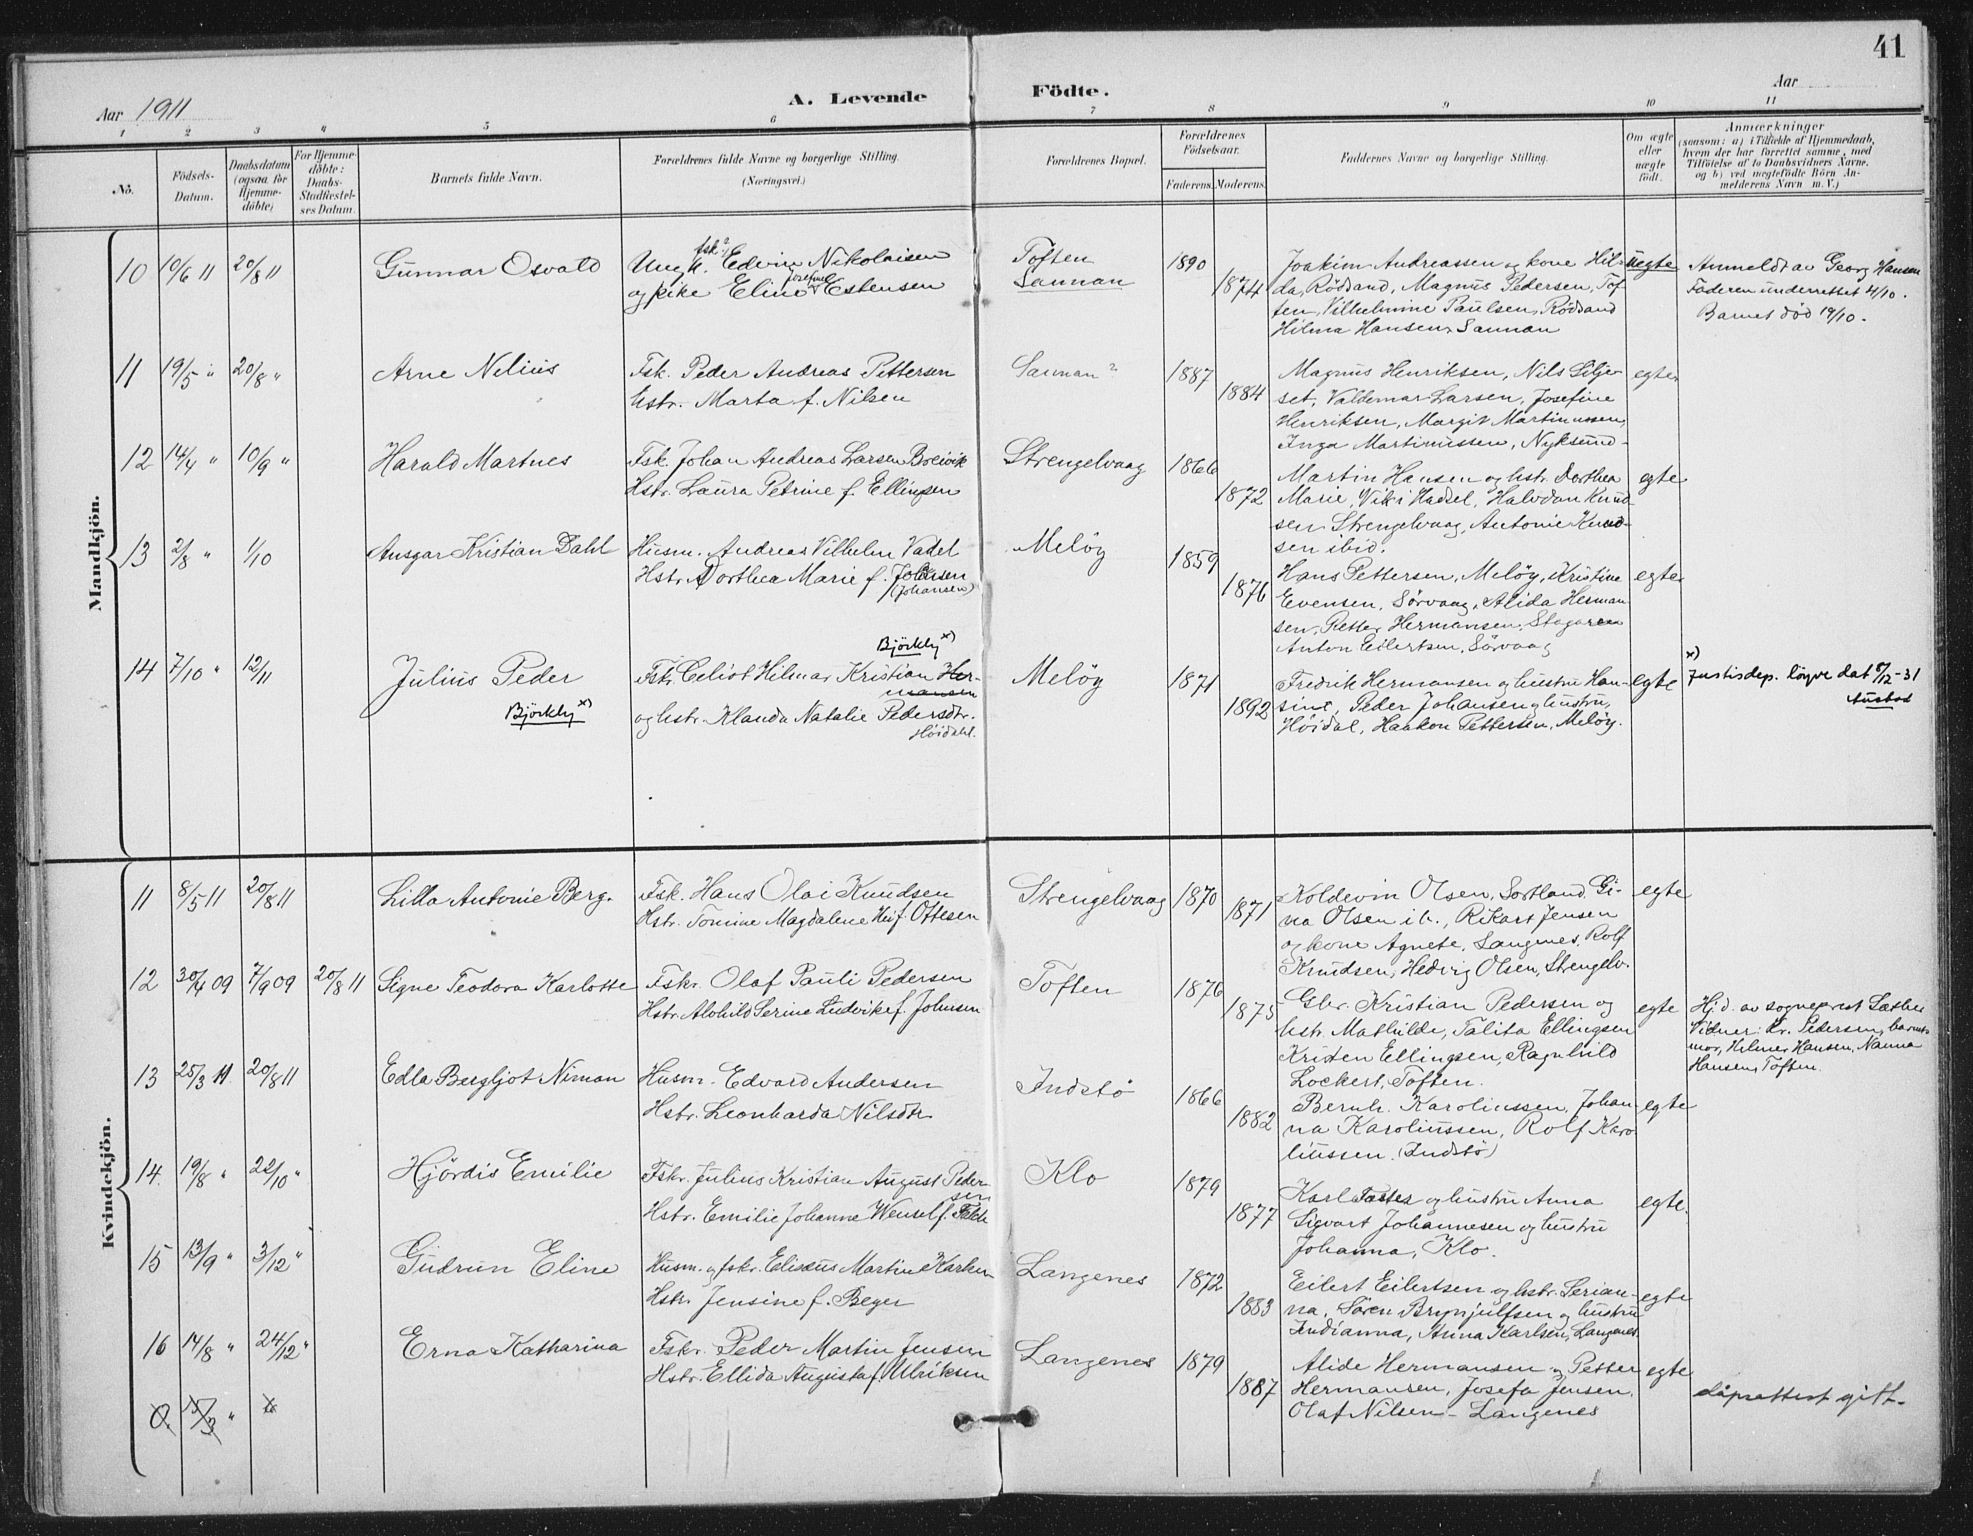 41
Aar 1911
A. Levende Födte.
Aar
1 2 3 4 5 6 7 8 9 10 11
No.
Födsels-Datum.
Daabsdatum (ogsaa for Hjemme-döbte)
For Hjemme-döbte: Daabs-Stadfæstel-ses Datum.
Barnets fulde Navn.
Forældrenes fulde Navne og borgerlige Stilling. (Næringsvei.)
Forældrenes Bopæl.
Forældrenes Födselsaar.
Faderens. Moderens.
Faddernes Navne og borgerlige Stilling.
Om ægte eller uægte födt.
Anmærkninger
(saasom: a) i Tilfælde af Hjemmedaab, hvem der har forrettet samme, med Tilföielse af to Daabsvidners Navne. og b) ved uægtefödte Börn An-melderens Navn m. V.)
Mandkjön.
10 10/6 11 20/8 11 Gunnar Osvald
Ungk. fsk. Edvin Nikolaisen
og pike Eline Josefine Estensen
Toften
Sannan
1890
1874
Joakim Andreassen og kone Hil-
da, Rödsand, Magnus Pedersen, Tof-
ten, Vilhelmine Paulsen, Rödsand
Hilma Hansen, Sannan
uegte
Anmeldt av Georg Hansen
Faderen underrettet 4/10.
Barnet död 19/10.
11 19/5 " 20/8 " Arne Nelius
Fsk. Peder Andreas Pettersen
hstr. Marta f. Nilsen
Sannan
1887
1884
Magnus Henriksen, Nils Silje-
set, Valdemar Larsen, Josefine
Henriksen, Margit Martinussen,
Inga Martinussen, Nyksund
egte
12 14/4 " 10/9 " Harald Martnes
Fsk. Johan Andreas Larsen Breivik
Hstr. Laura Petrine f. Ellingsen
Strengelvaag
1866
1872
Martin Hansen og hstr. Dorthea
Marie, Vik i Hadsel, Halvdan Knud-
sen Strengelvaag, Antonie Knud-
sen ibid.
egte
13 2/8 " 1/10 Ansgar Kristian Dahl
Husm. Andreas Vilhelm Vadel
Hstr. Dorthea Marie f. Johnsen
(Johansen)
Melöy
1859
1876
Hans Pettersen, Melöy, Kristine
Evensen, Sörvaag, Alida Herman
sen, Petter Hermansen, Stagaren
Anton Eilertsen, Sörvaag
egte
14 7/10 " 12/11 Julius Peder
Björkly x)
Björkly x)
Fskr. Celiot Hilmar Kristian Her-
mansen
og hstr. Klanda Natalie Pedersdtr.
Höidahl.
Melöy
1871
1892
Fredrik Hermansen og hustru Han-
sine, Peder Johansen og hustru,
Höidal, Haakon Pettersen, Melöy.
egte
x)
Justisdep. löyve dat 5/12-31
Kvindekjön.
11 8/5 11 20/8 11 Lilla Antonie Berg.
Fsk. Hans Olai Knudsen
Hstr. Tomine Magdalene f. Ottesen
Strengelvaag
1870
1871
Koldevin Olsen, Sortland, Gi-
na Olsen ib., Rikart Jensen
og kone Agnete, Langenes, Rolf
Knudsen, Hedvig Olsen, Strengelv.
egte
12 30/4 09 7/9 09 20/8 11 Signe Teodora Karlotte
Fskr. Olaf Pauli Pedersen
Hstr. Alvhild Serine Ludvike f. Johnsen
Toften
1876
1875
Gbr. Kristian Pedersen og
hstr. Mathilde, Talita Ellingsen
Kristen Ellingsen, Ragnhild
Lockert, Toften.
egte
Hj.d. av sogneprest Sæther
Vidner: Kr. Pedersen, barnets
mor, Hilmer Hansen, Nanna
Hansen, Toften.
13 25/3 11. 20/8 11 Edla Bergljot Niman
Husm. Edvard Andersen
Hstr. Leonharda Nilsdtr
Indstö
1866
1882
Bernh. Karoliussen, Johan-
na Karoliussen, Rolf Karo-
liussen. (Indstö)
egte
14. 19/8 " 22/10 " Hjördis Emilie
Fskr. Julius Kristian August Peder-
sen
Hstr. Emilie Johanne Wensel f. Falch
Klo
1879
1877
Karl og hustru Anna
Sigvart Johannesen og hustru
Johanna, Klo.
egte.
15 13/9 " 3/12 " Gudrun Eline
Husm. og fskr. Eliseus Martin Karlsen
Hstr. Jensine f. Beyer
Langenes
1872
1883
Eilert Eilertsen og hstr. Serian-
na, Sören Brynjulfsen og hustru
Indianna, Anna Karlsen, Langenes
egte
16 14/8 " 24/12 " Erna Katharina
Fskr. Peder Martin Jensen
Hstr. Ellida Augusta f. Ulriksen
Langenes
1879
1887
Alide Hermansen og Petter
Hermansen, Josefa Jensen,
Olaf Nilsen - Langenes
egte
dåpsattest gitt.
15/3 "